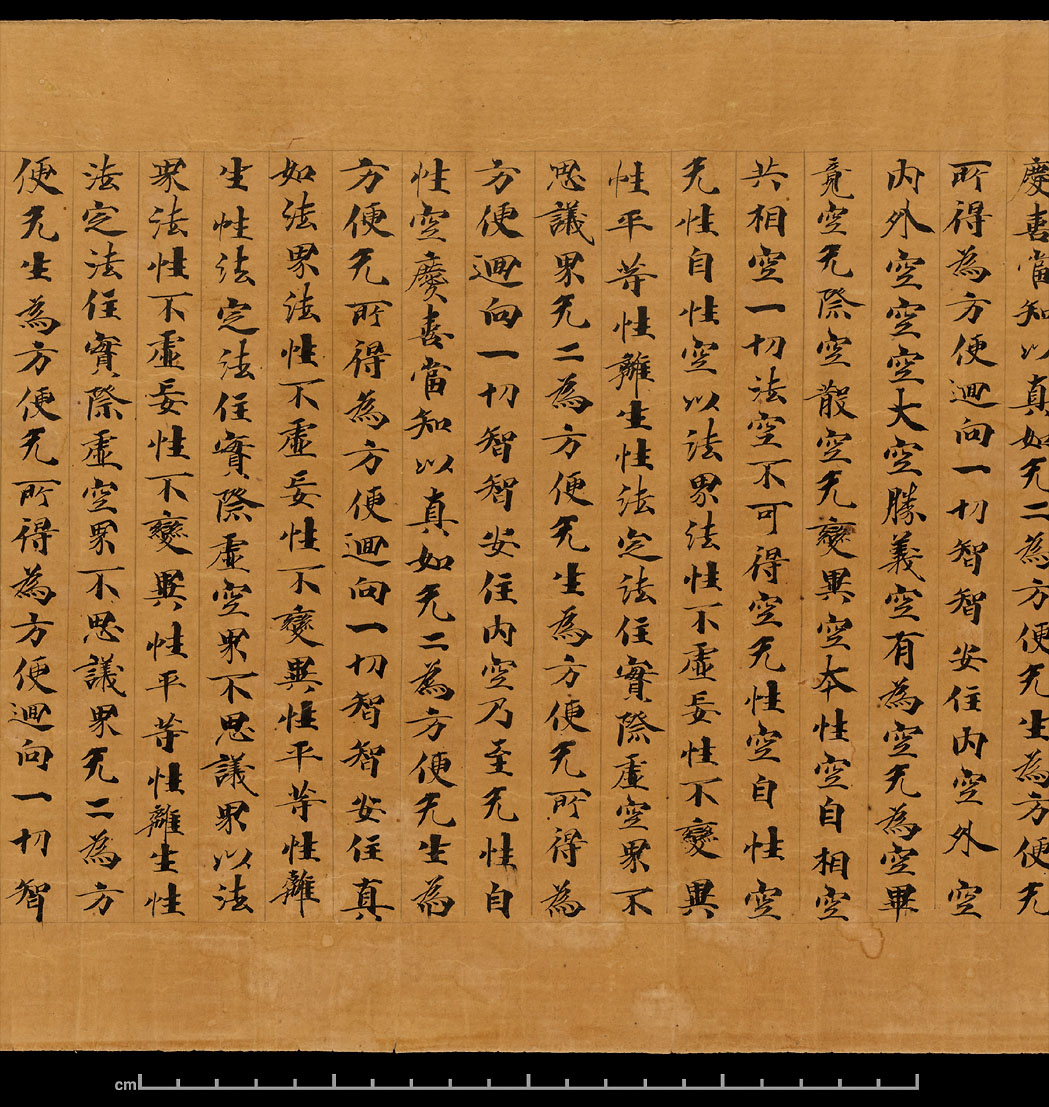 慶喜當知以真如无二為方便无生為方便无
所得為方便迴向一切智智安住內空外空
內外空空空大空勝義空有為空无為空畢
竟空无際空散空无變異空本性空自相空
共相空一切法空不可得空无性空自性空
无性自性空以法界法性不虛妄性不變異
性平等性離生性法定法住實際虛空界不
思議界无二為方便无生為方便无所得為
方便迴向一切智智安住內空乃至无性自
性空慶喜當知以真如无二為方便无生為
方便无所得為方便迴向一切智智安住真
如法界法性不虛妄性不變異性平等性離
生性法定法住實際虛空界不思議界以法
界法性不虛妄性不變異性平等性離生性
法定法住實際虛空界不思議界无二為方
便无生為方便无所得為方便迴向一切智
cm